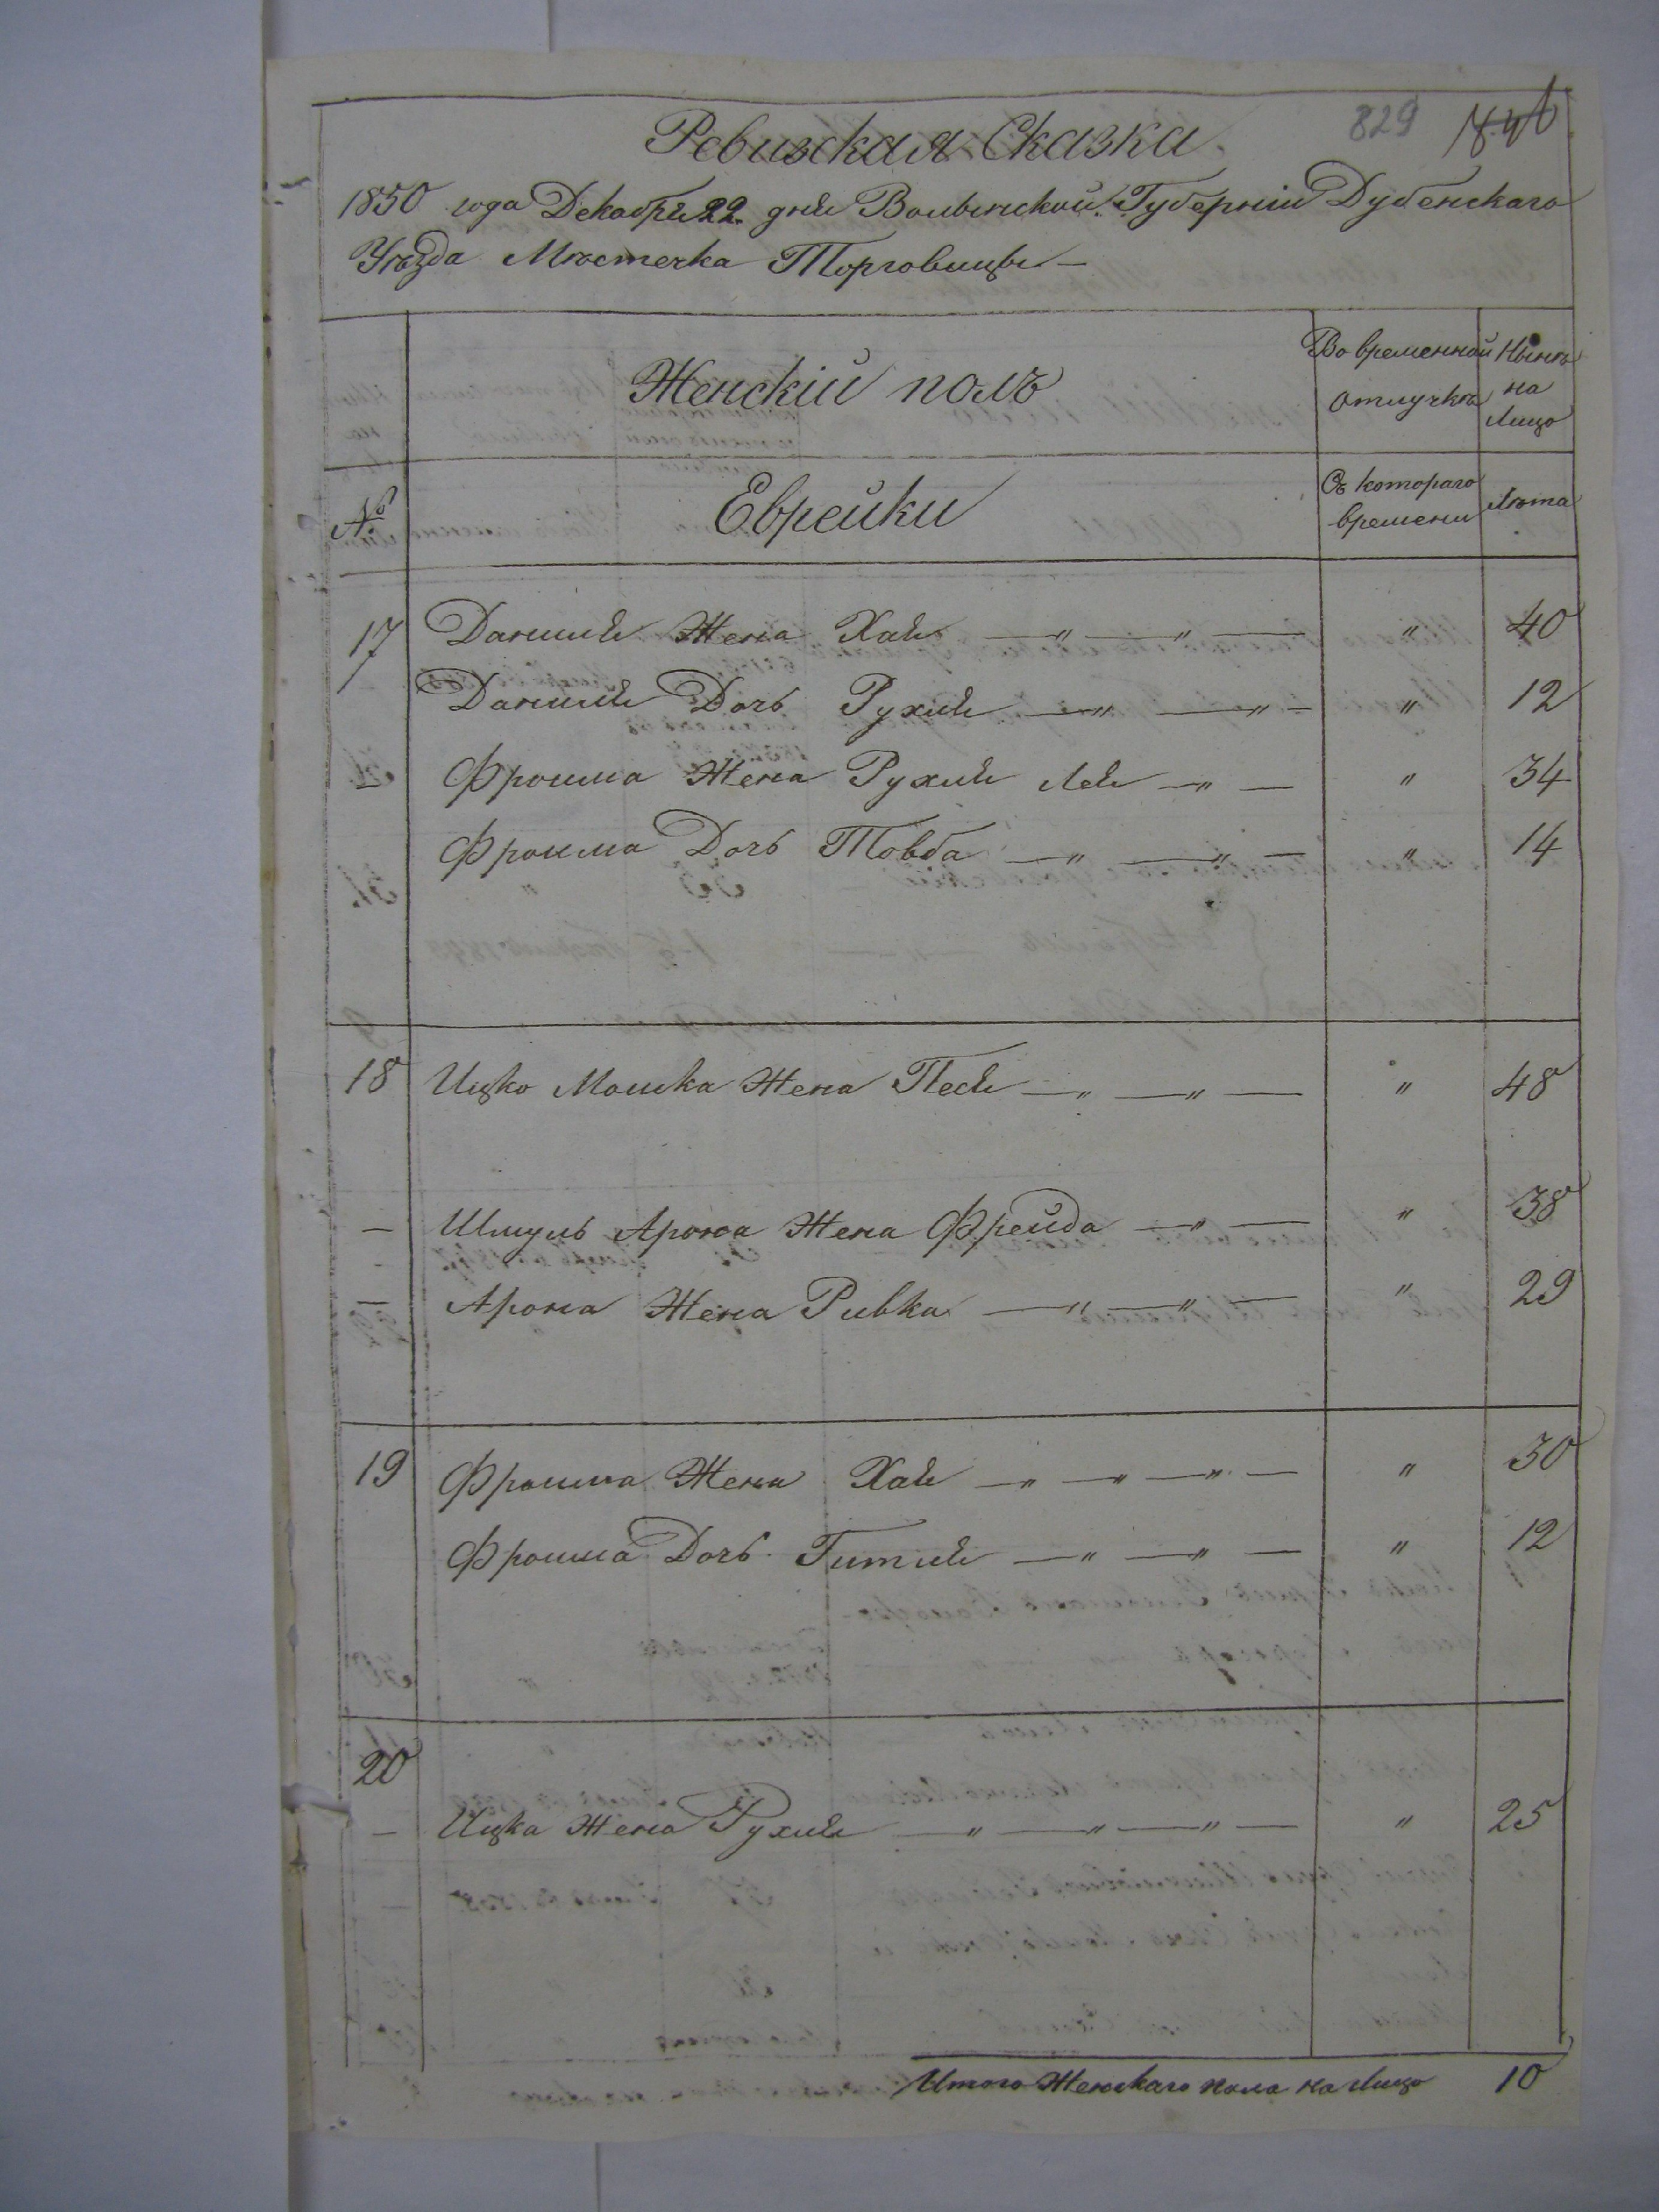 829
Ревизская Сказка
1850 года Декабря 22 дня Волынской Губерніи Дубенскаго
Уѣзда Мѣстечка Торговицы —
Женскій полъ
Во временной отлучкѣ
Нынѣ на Лицо
№
Еврейки
Съ котораго времени
Лѣта
17 Даниила Жена Хая — " — " — " 40
Даниила Дочь Рухля — " — " — " 12
Фроима Жена Рухля Лея — " — " 34
Фроима Дочь Товба — " — " — " 14
18 Ицко Мошка Жена Песя — " — " — " 48
— Шмуль Арона Жена Фрейда — " — " 38
— Арона Жена Ривка — " — " — " 29
19 Фроима Жена Хая — " — " — " — " 30
Фроима Дочь Гитля — " — " — " 12
20
— Ицка Жена Рухля — " — " — " — " 25
Итого Женскаго пола на Лицо 10